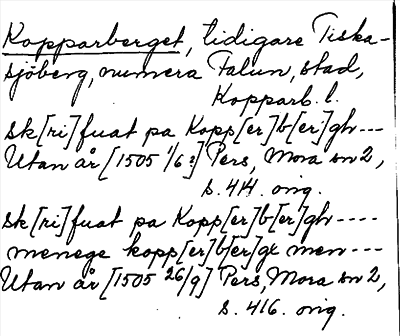 Kopparberget, tidigare Tiska-
sjöberg, numera Falun, stad,
Kopparb. l.
sk[ri]fuat pa Kopp[er]b[er]gh---
Utan år [1505 1/6 ?] Pers, Mora sn 2,
s. 414. orig.
sk[ri]fuat pa Kopp[er]b[er]gh----
menege kopp[er]b[er]gx men---
Utan år [1505 26/9] Pers, Mora sn 2,
s. 416. orig.